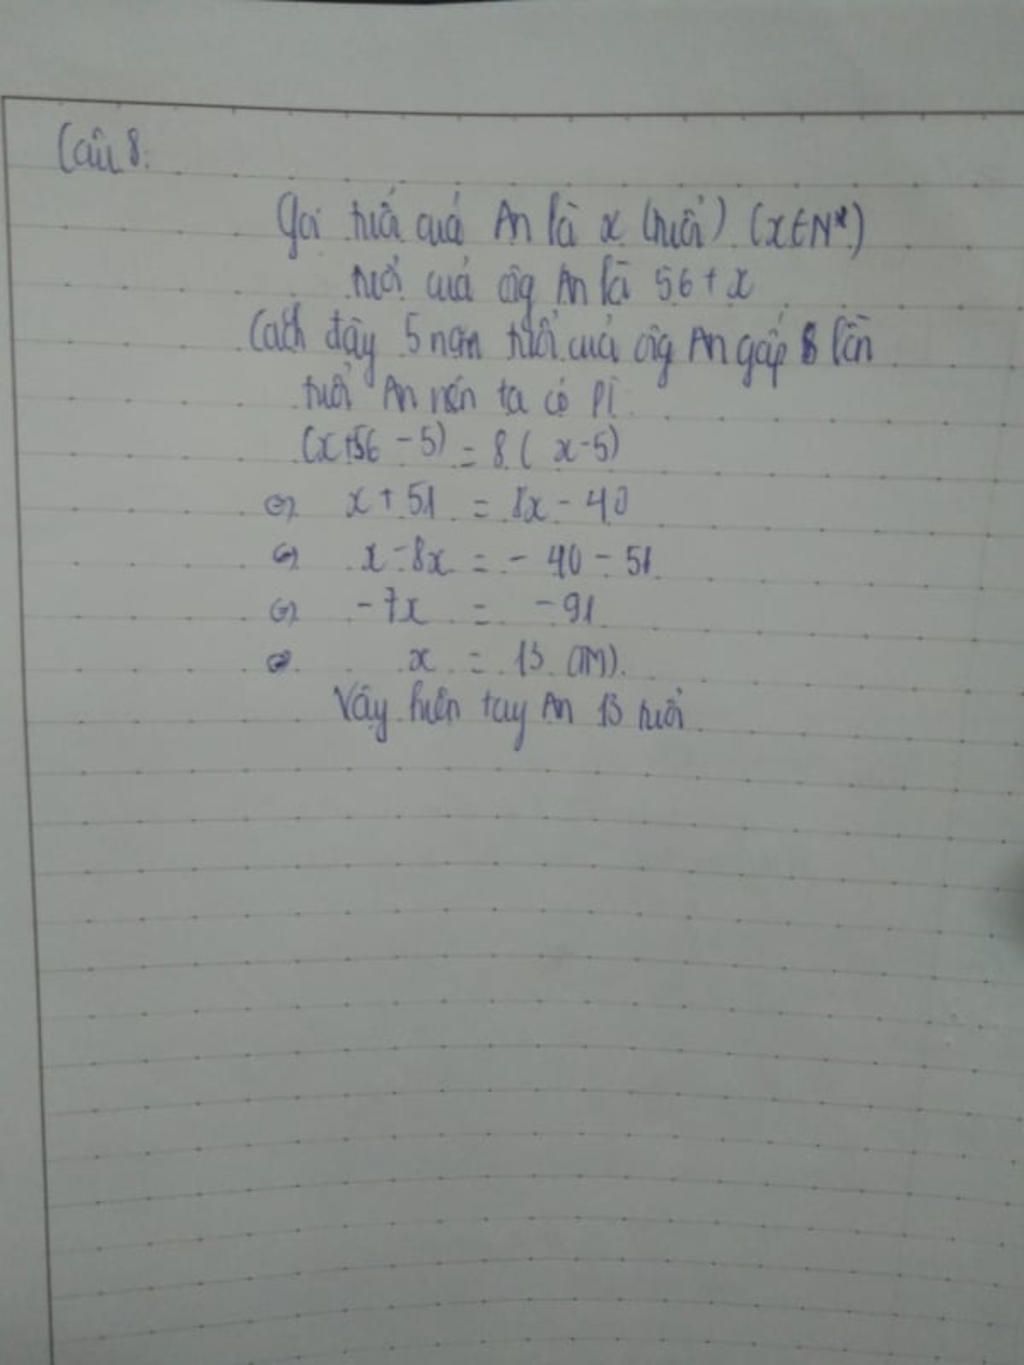 Câu 8:
Gọi tuổi của An là x (tuổi) (x ∈ N*)
tuổi của ông An là 56 + x
Cách đây 5 năm tuổi của ông An gấp 8 lần
tuổi An nên ta có PT
(x+56 - 5) = 8 ( x - 5)
<=> x + 51 = 8x - 40
<=> x - 8x = - 40 - 51
<=> - 7x = - 91
<=> x = 13 (TM).
Vậy hiện tay An 13 tuổi